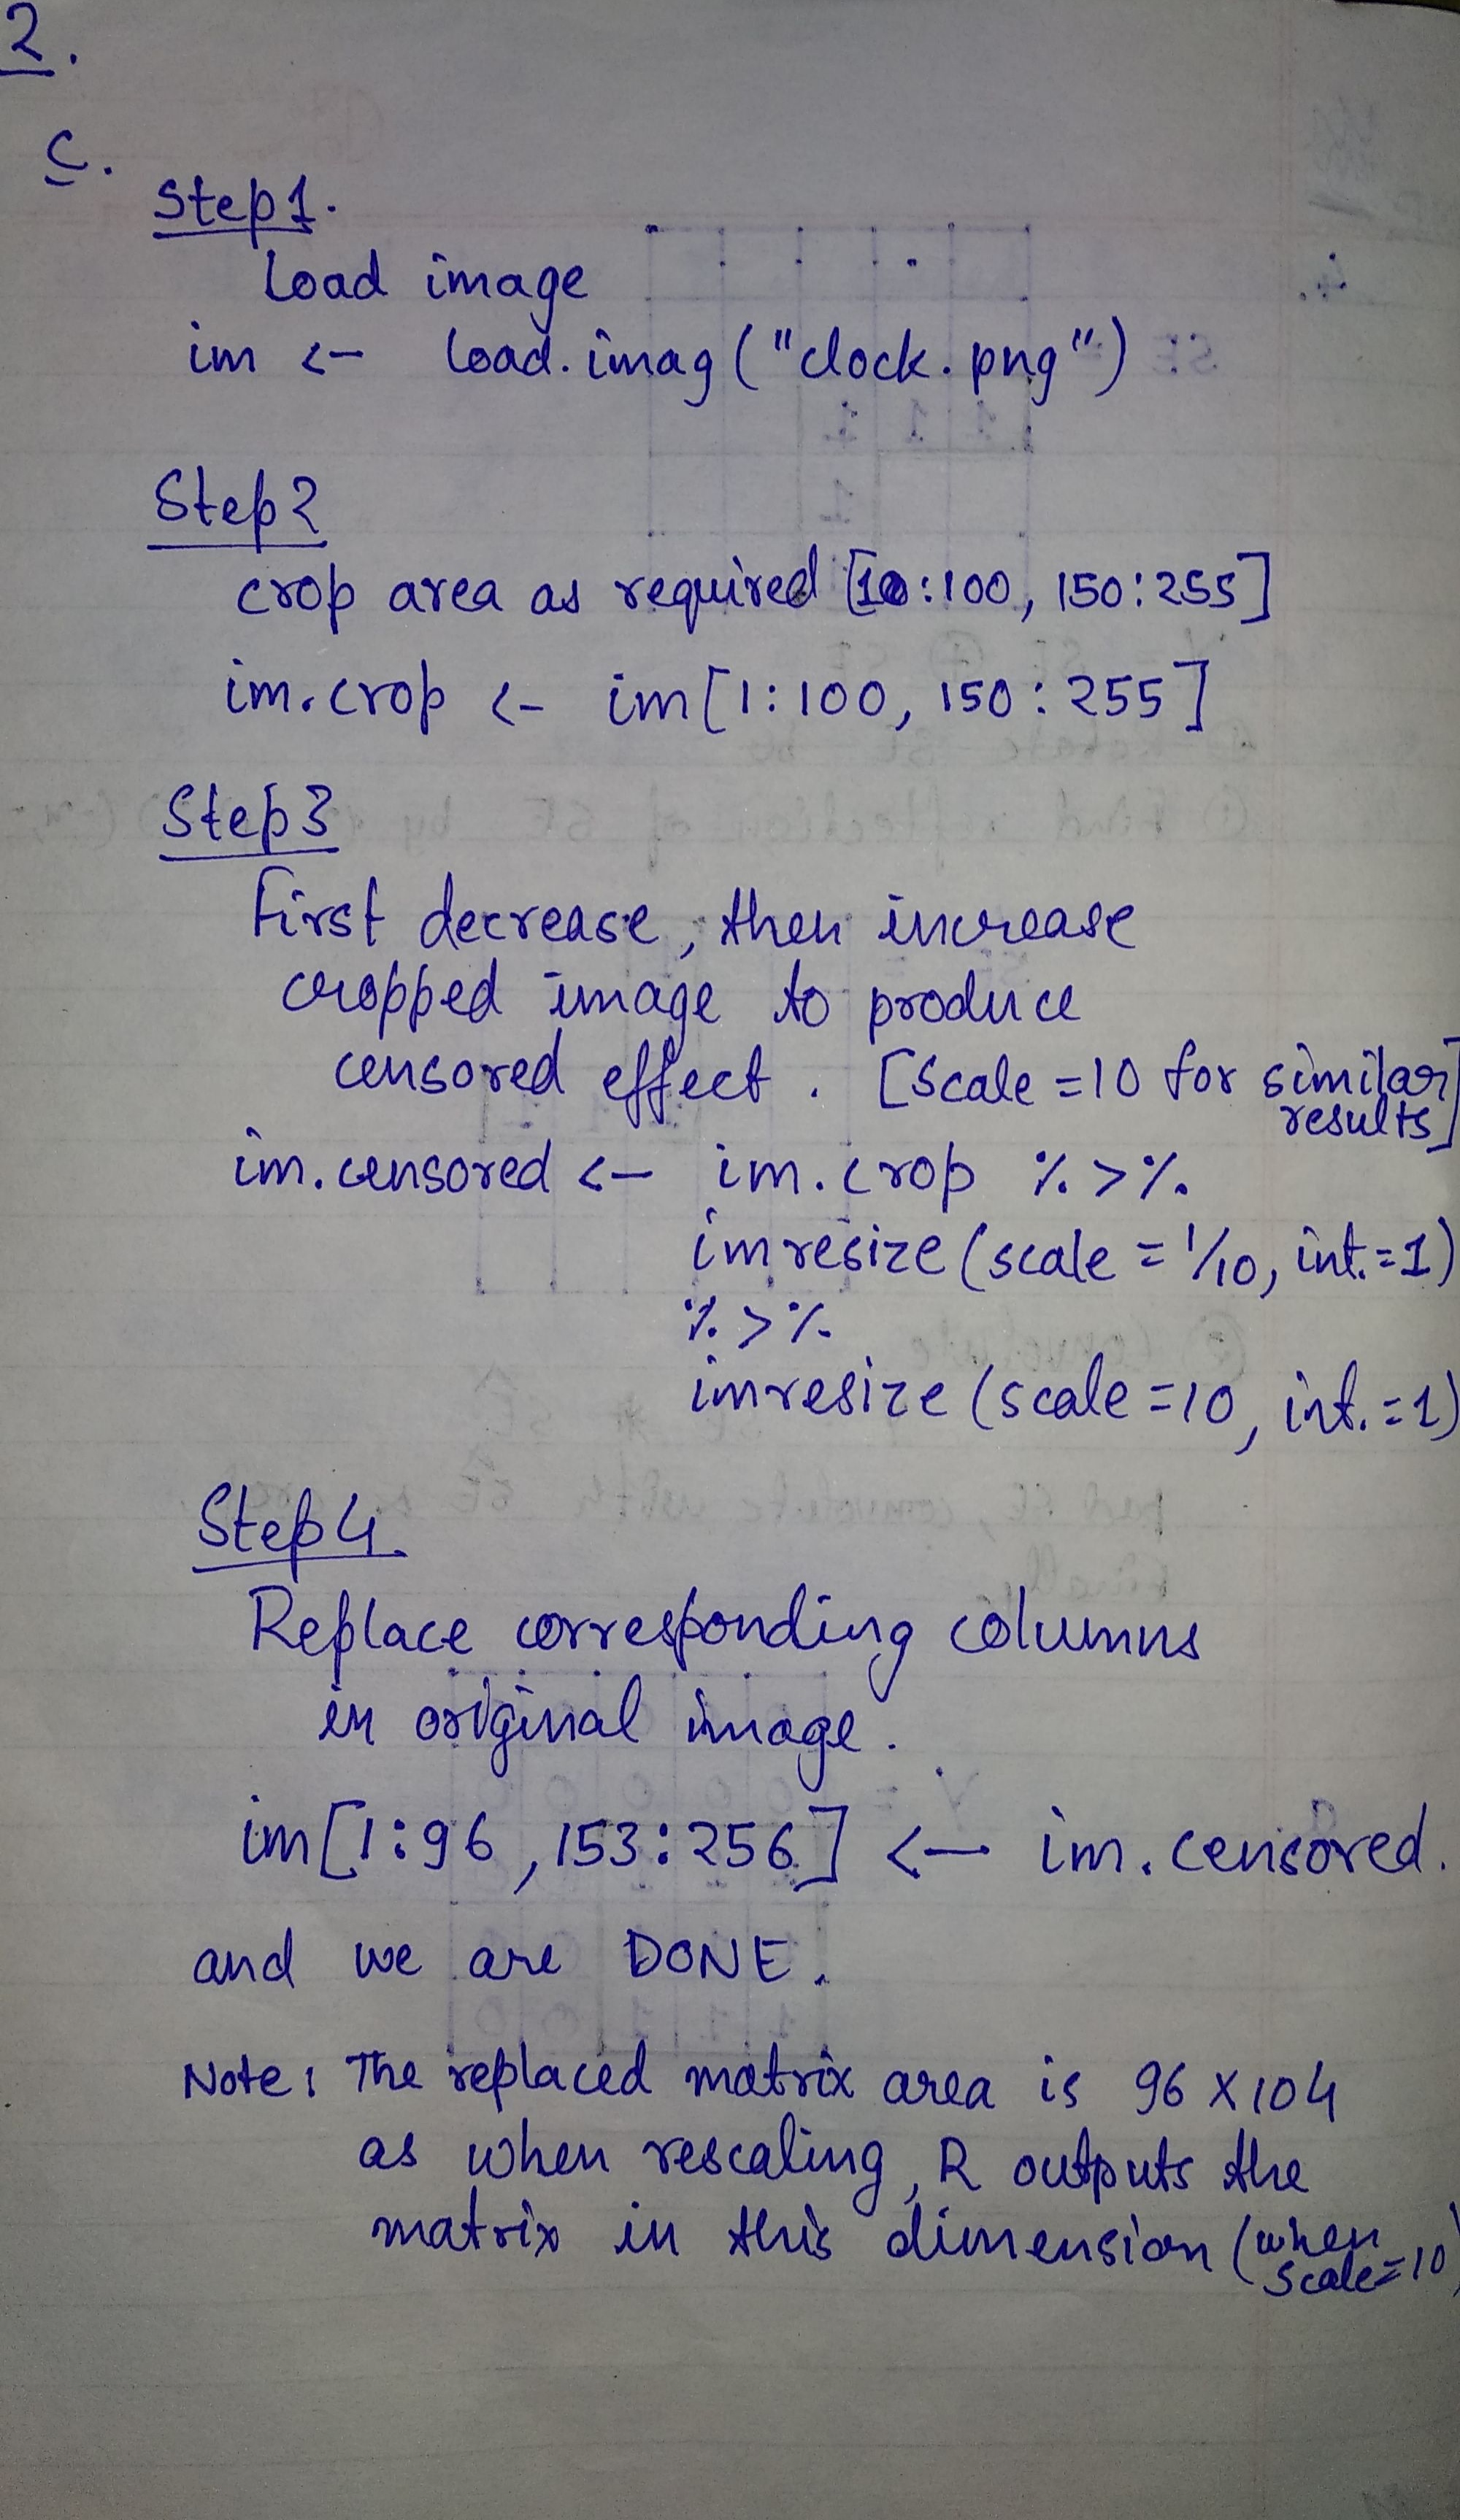 2.
c.
Step 1.
Load image
im <- load.imag("clock.png")
Step 2
crop area as required [10:100, 150:255]
im.crop <- im[1:100, 150:255]
Step 3
First decrease, then increase
cropped image to produce
censored effect. [scale=10 for similar
results]
im.censored <- im.crop %>%
imresize(scale = 1/10, int.=1)
%>%
imresize(scale=10, int.=1)
Step 4.
Replace corresponding columns
in original image.
im[1:96, 153:256] <- im.censored.
and we are DONE.
Note: The replaced matrix area is 96 X 104
as when rescaling, R outputs the
matrix in this dimension (when
scale=10)